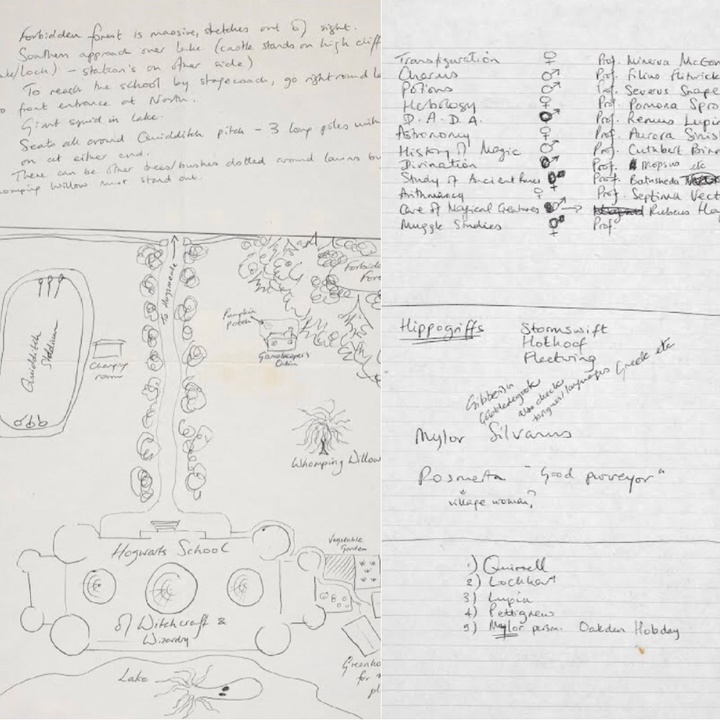 Forbidden forest is massive, stretches out of sight.
Southern approach over lake (castle stands on high cliff
lake/loch) – station's on other side)
To reach the school by stagecoach, go right round la
to front entrance at North.
Giant squid in lake.
Seats all around Quidditch pitch – 3 long poles with
on at either end.
There can be other trees/bushes dotted around lawns bu
Whomping Willow must stand out.
To Hogsmeade
Forbidde
Fore
Quidditch
Stadium
Changing
room
Pumpkin
patch
Gamekeeper's
Cabin
Whomping Willow
Hogwarts School
of Witchcraft &
Wizardry
Vegetable
Garden
Greenho
for m
pl
Lake
Transfiguration ♀ Prof. Minerva McGon
Charms ♂ Prof. Filius Flitwick
Potions ♂ Prof. Severus Snape
Herbology ♀ Prof. Pomona Spro
D.A.D.A. ♂ Prof. Remus Lupin
Astronomy ♀ Prof. Aurora Sinis
History of Magic ♂ Prof. Cuthbert Binn
Divination ♂ Prof. Mopsus etc
Study of Ancient Runes ♀ Prof. Bathsheda
Arithmancy ♀ Prof. Septima Vect
Care of Magical Creatures ♂ → Rubeus Ha
Muggle Studies ♀ Prof
Hippogriffs Stormswift
Hothoof
Fleetwing
Gibberish
Gobbledegook
also check
tongues/languages Greek etc
Mylor Silvanus
Rosmerta "Good purveyor"
village woman?
1) Quirrell
2) Lockhart
3) Lupin
4) Pettigrew
5) Mylor Oakden Hobday